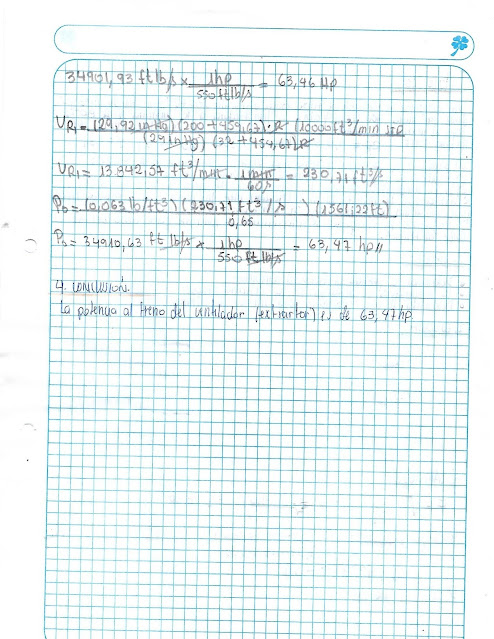 34901,93 ft lb/s × 1hp / 550 ft lb/s = 63,46 HP
VR1 = (29,92 in Hg) (200+459,67)·R (10000 ft³/min std / (29 in Hg) (32+459,67)R
VR1 = 13.842,57 ft³/min · 1 min / 60s = 230,71 ft³/s
Po = (0,063 lb/ft³) (230,71 ft³/s) (1561,22 ft) / 0,65
Po = 34910,63 ft lb/s × 1hp / 550 ft lb/s = 63,47 hp //
4. CONCLUSION.
La potencia al freno del ventilador (extractor) es de 63,47 hp